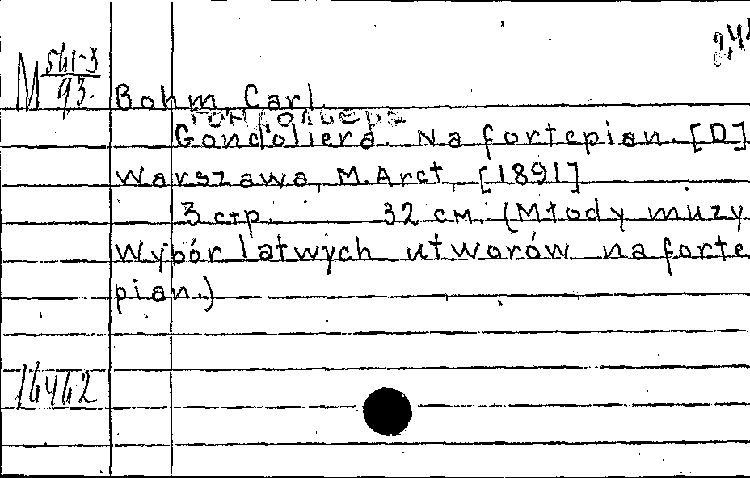 M 561-3
93.
Bohm, Carl.
Gondoliera. Na fortepian. [D]
Warszawa, M. Arct, [1891]
3 стр. 32 см. (Młody muzy
Wybór latwych utworów na forte
pian.)
16462